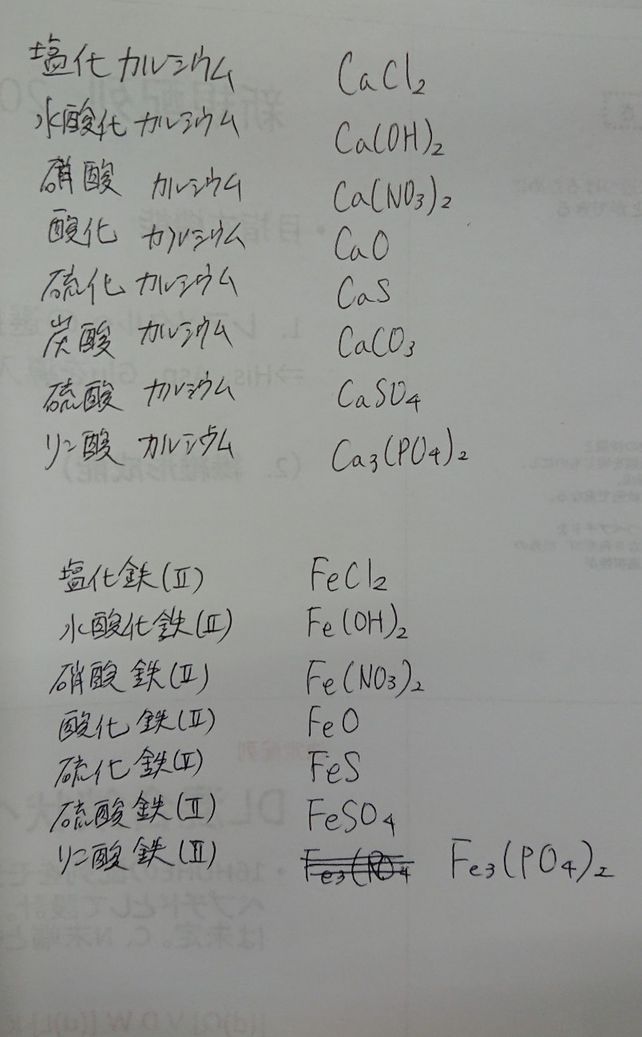 塩化カルシウム CaCl₂
水酸化カルシウム Ca(OH)₂
硝酸 カルシウム Ca(NO₃)₂
酸化 カルシウム CaO
硫化 カルシウム CaS
炭酸 カルシウム CaCO₃
硫酸 カルシウム CaSO₄
リン酸 カルシウム Ca₃(PO₄)₂
塩化鉄(Ⅱ) FeCl₂
水酸化鉄(Ⅱ) Fe(OH)₂
硝酸鉄(Ⅱ) Fe(NO₃)₂
酸化鉄(Ⅱ) FeO
硫化鉄(Ⅱ) FeS
硫酸鉄(Ⅱ) FeSO₄
リン酸鉄(Ⅱ) Fe₃(PO₄)₂